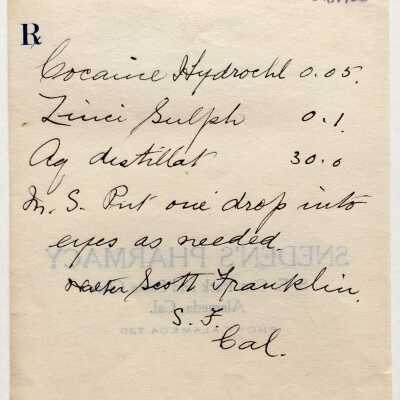 Rx
Cocaine Hydrochl 0.05.
Zinci Sulph 0.1
Aq distillat 30.0
M. S. Put one drop into
eyes as needed
SNEDEN'S PHARMACY
Scott Franklin.
Alameda, Cal.
S. F.
PHONE ALAMEDA
Cal.